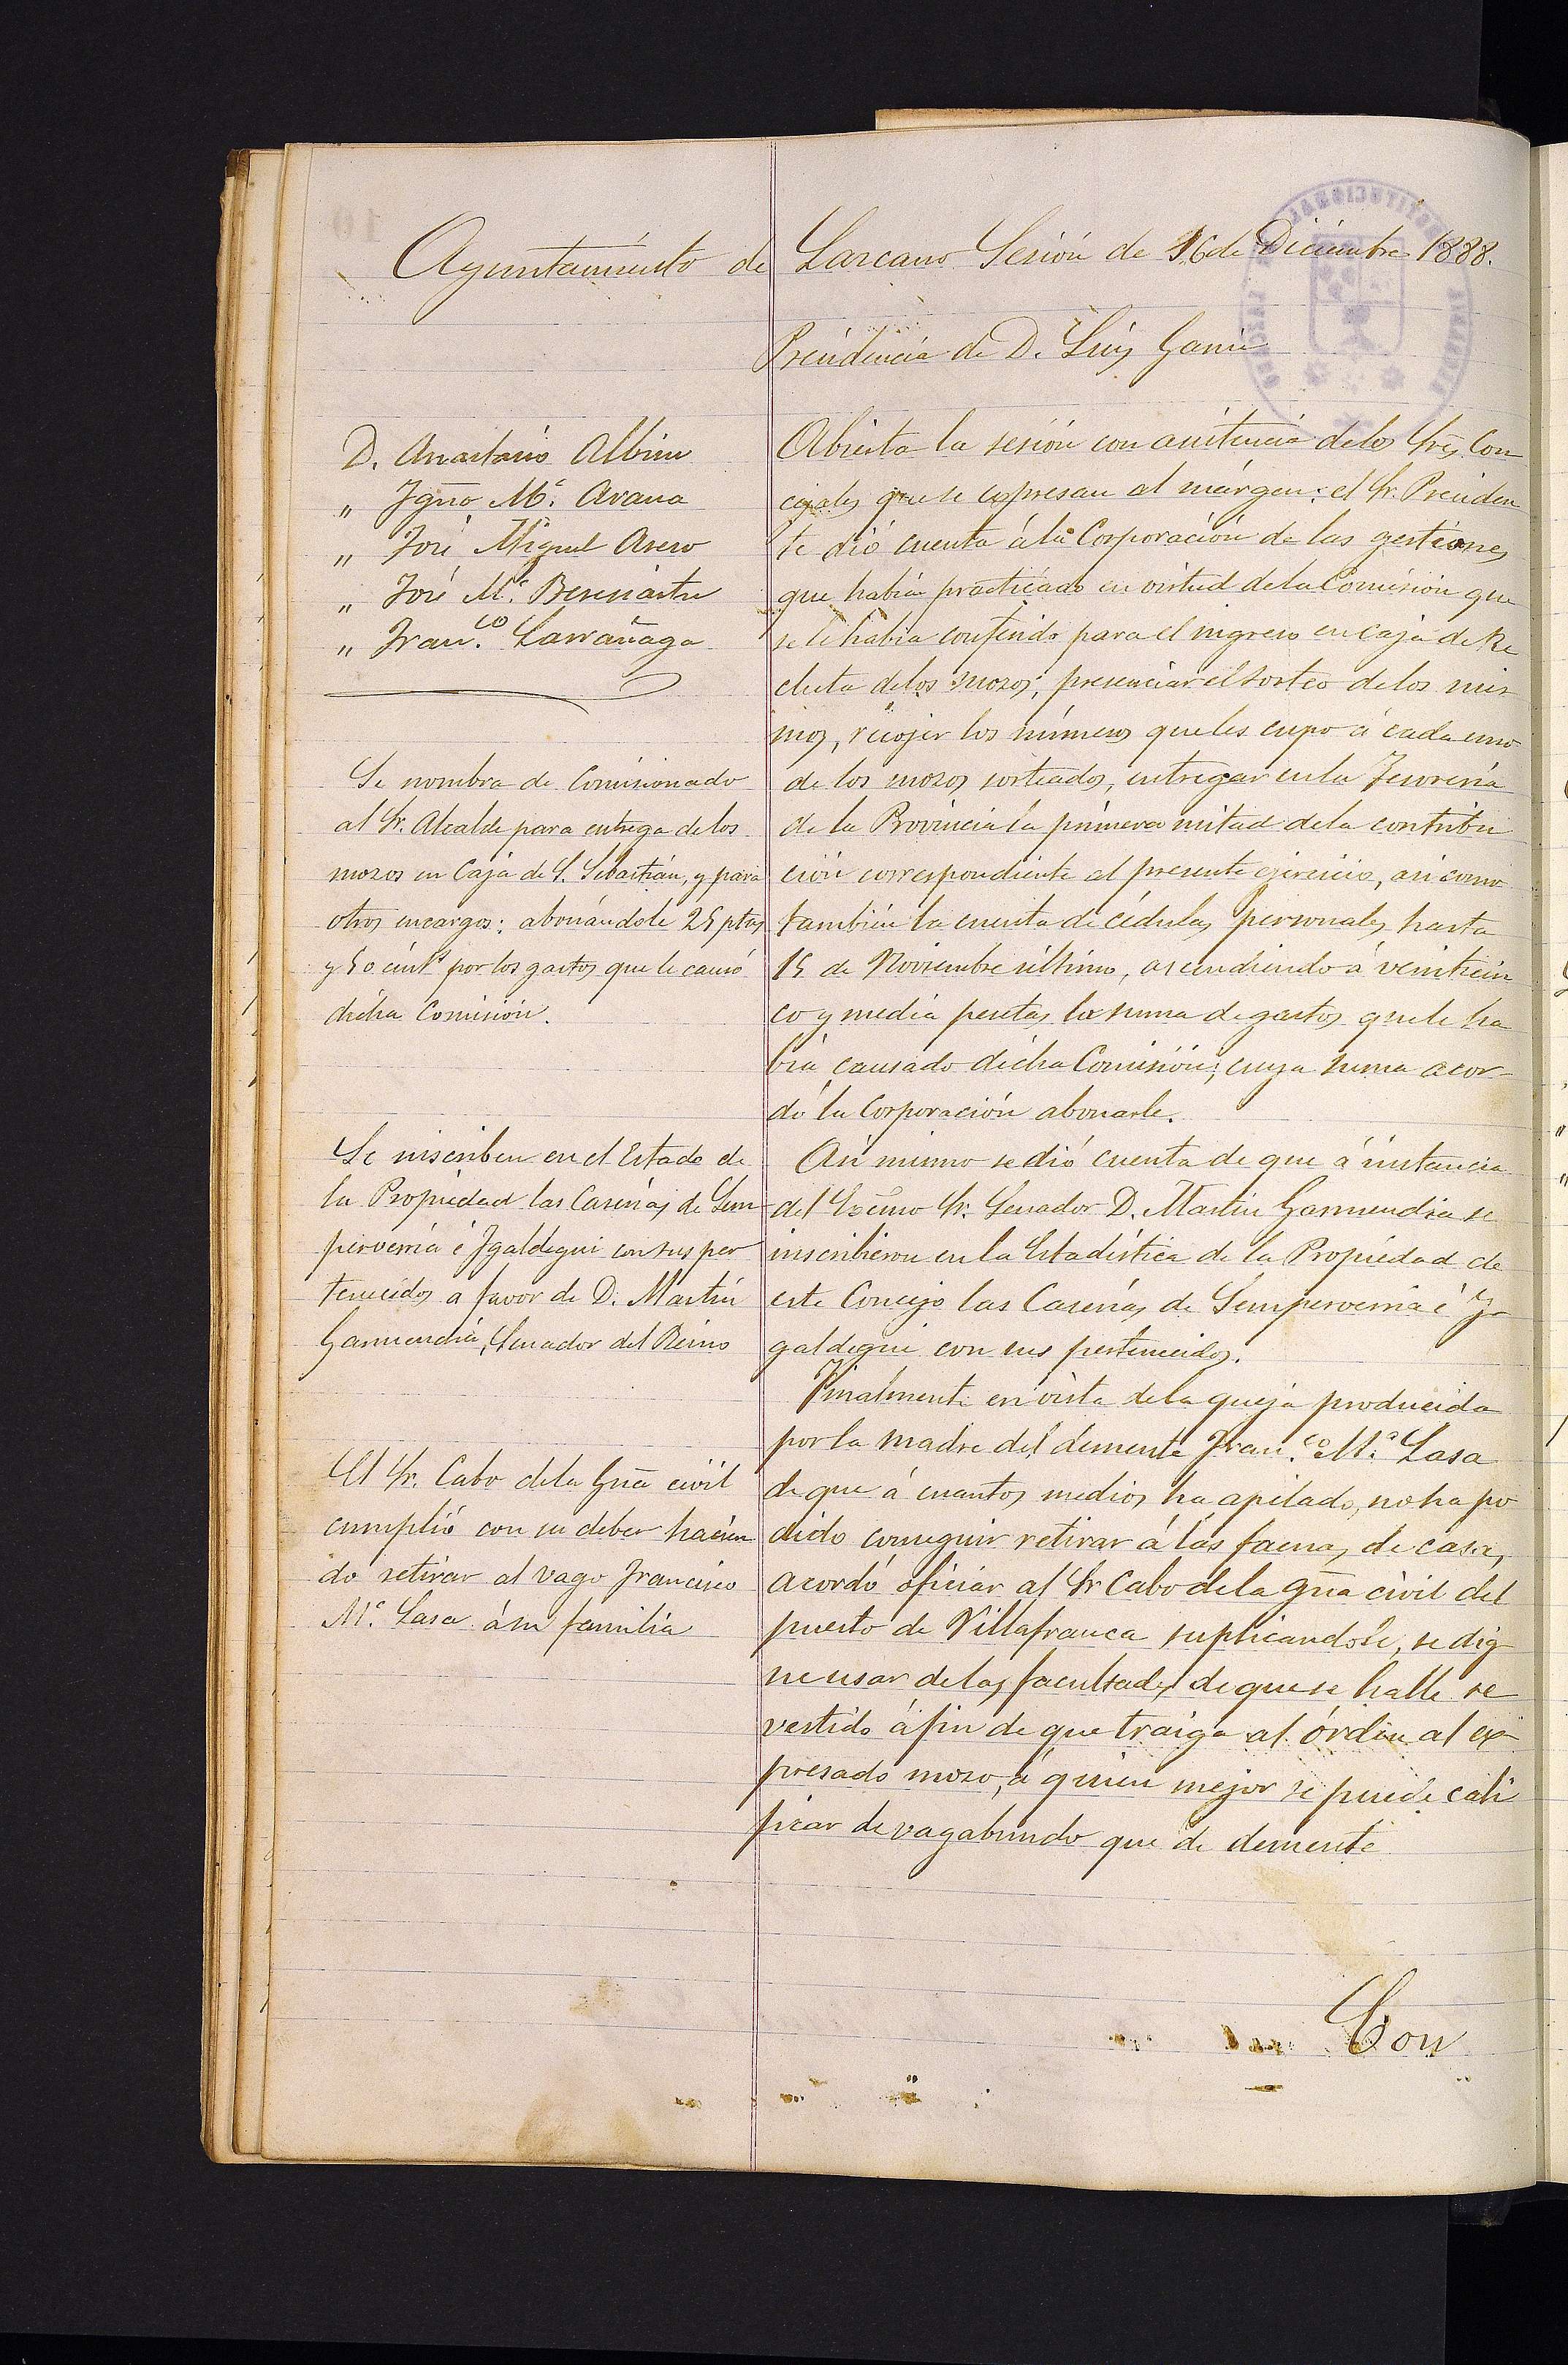 Ayuntamiento de Lazcano Sesión de 16 de Diciembre 1888.
Presidencia de D. Luis Garin
D. Anastasio Albisu
" Ygño. Mª. Arana
" José Miguel Asero
" José Mª. Beresiartu
" Franco. Larrañaga
Se nombra de Comisionado
al Sr. Alcalde para entrega de los
mozos en Caja de S. Sebastián, y para
otros encargos: abonándole 25 ptas
y 50 cints por los gastos que le causó
dicha Comisión.
Se inscriben en el Estado de
la Propiedad las Caserías de Sem
perverria é Ygaldegui con sus per
tenecidos a favor de D. Martín
Garmendia, Senador del Reino
El Sr. Cabo de la Gña civil
cumplió con su deber hacien
do retirar al vago Francisco
Mª. Lasa á su familia
Abierta la sesión con asistencia de los Sres. Con
cejales que se expresan al márgen: el Sr. Presiden
te dió cuenta á la Corporación de las gestiones
que había practicado en virtud de la Comisión que
se le habia conferido para el ingreso en caja de Re
cluta de los mozos; presenciar el sorteo de los mis
mos, recojer los números que les cupo á cada uno
de los mozos sorteados, entregar en la Tesorería
de la Provincia la primera mitad de la contribu
ción correspondiente al presente ejercicio, asi como
también la cuenta de cédulas personales hasta
15 de Noviembre último, ascendiendo á veinticin
co y media pesetas la suma de gastos que le ha
bía causado dicha Comisión; cuya suma acor-
dó la Corporación abonarle.
Asi mismo se dió cuenta de que á instancia
del Excmo Sr. Senador D. Martin Garmendia se
inscribieron en la Estadística de la Propiedad de
este Concejo las Caserías de Semperverria é Y-
galdegui con sus pertenecidos.
Finalmente en vista de la queja producida
por la madre del demente Franco. Mª. Lasa
de que á cuantos medios ha apelado, no ha po
dido conseguir retirar á las faenas de casa,
acordó oficiar al Sr Cabo de la Gña civil del
puesto de Villafranca suplicandole, se dig
ne usar de las facultades de que se halle re
vestido á fin de que traiga al órden al ex-
presado mozo, á quien mejor se puede cali
ficar de vagabundo que de demente
Con